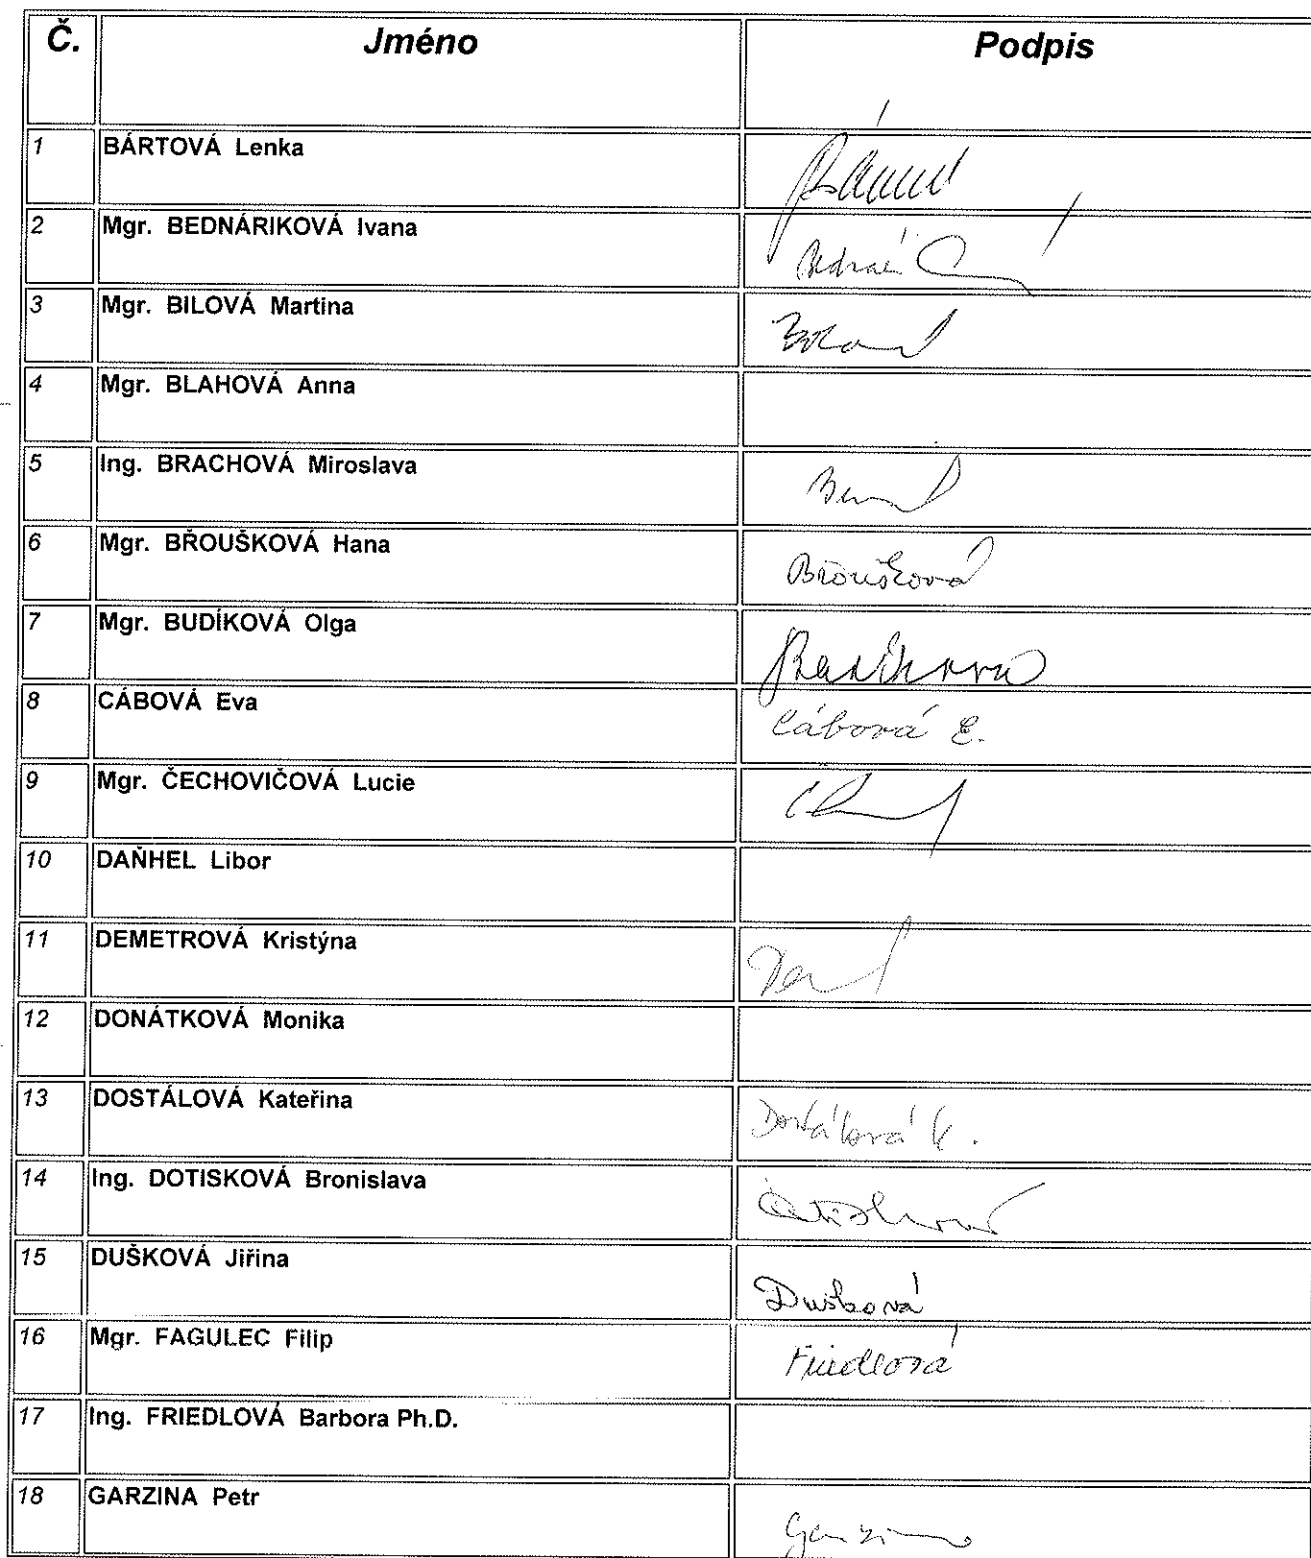 Č. Jméno Podpis
1 BÁRTOVÁ Lenka
2 Mgr. BEDNÁRIKOVÁ Ivana
3 Mgr. BILOVÁ Martina
4 Mgr. BLAHOVÁ Anna
5 Ing. BRACHOVÁ Miroslava
6 Mgr. BŘOUŠKOVÁ Hana Broušková
7 Mgr. BUDÍKOVÁ Olga
8 CÁBOVÁ Eva Cábová E.
9 Mgr. ČECHOVIČOVÁ Lucie
10 DAŇHEL Libor
11 DEMETROVÁ Kristýna
12 DONÁTKOVÁ Monika
13 DOSTÁLOVÁ Kateřina Dostálová K.
14 Ing. DOTISKOVÁ Bronislava
15 DUŠKOVÁ Jiřina Dušková
16 Mgr. FAGULEC Filip Friedlová
17 Ing. FRIEDLOVÁ Barbora Ph.D.
18 GARZINA Petr